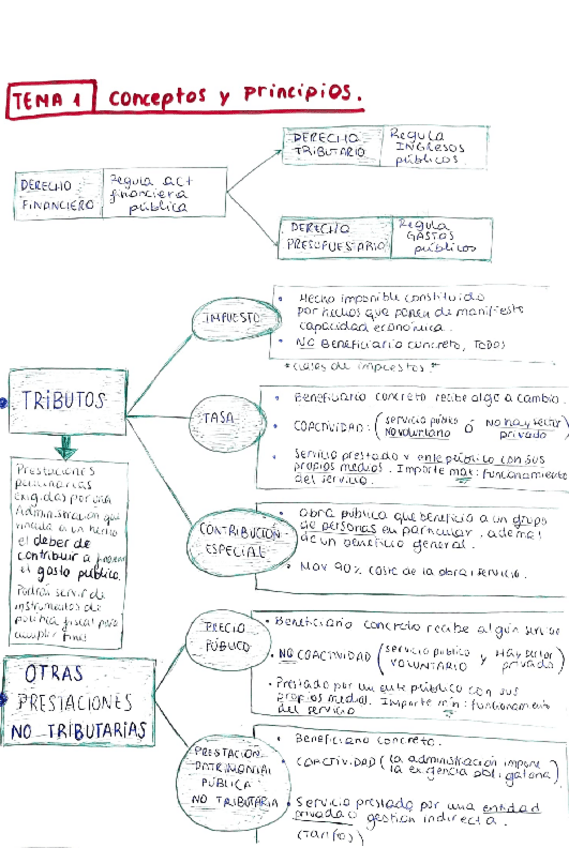 TEMA 1 conceptos y principios.
DERECHO TRIBUTARIO
Regula INGRESOS públicos.
DERECHO FINANCIERO
Regula act financiera pública
DERECHO PRESUPUESTARIO
Regula GASTOS públicos
IMPUESTO
• Hecho imponible constituido
por hechos que ponen de manifiesto
capacidad económica.
• NO Beneficiario concreto, TODOS
*clases de impuestos*
TRIBUTOS
TASA
• Beneficiario concreto recibe algo a cambio.
• COACTIVIDAD: (servicio público NO voluntario ó NO hay sector privado)
• Servicio prestado x ente público con sus
propios medios. Importe max: funcionamiento
del servicio.
Prestaciones
pecuniarias
exigidas por una
Administración que
vincula a un hecho
el deber de
contribuir a
el gasto público.
Podrán servir de
instrumentos de
política fiscal para
cumplir fines
CONTRIBUCIÓN ESPECIAL
• Obra pública que beneficia a un grupo
de personas en particular, además
de un beneficio general.
• Max 90% coste de la obra i servicio.
OTRAS
PRESTACIONES
NO TRIBUTARIAS
PRECIO PÚBLICO
• Beneficiario concreto recibe algún
• NO COACTIVIDAD (servicio público VOLUNTARIO y Hay sector privado)
• Prestado por un ente público con sus
propios medios. Importe min: funcionamiento
del servicio
PRESTACIÓN
PATRIMONIAL
PÚBLICA
NO TRIBUTARIA
• Beneficiario concreto.
• COACTIVIDAD (la administración impone la exigencia obligatoria)
• Servicio prestado por una entidad
privada o gestión indirecta.
(Tarifas)